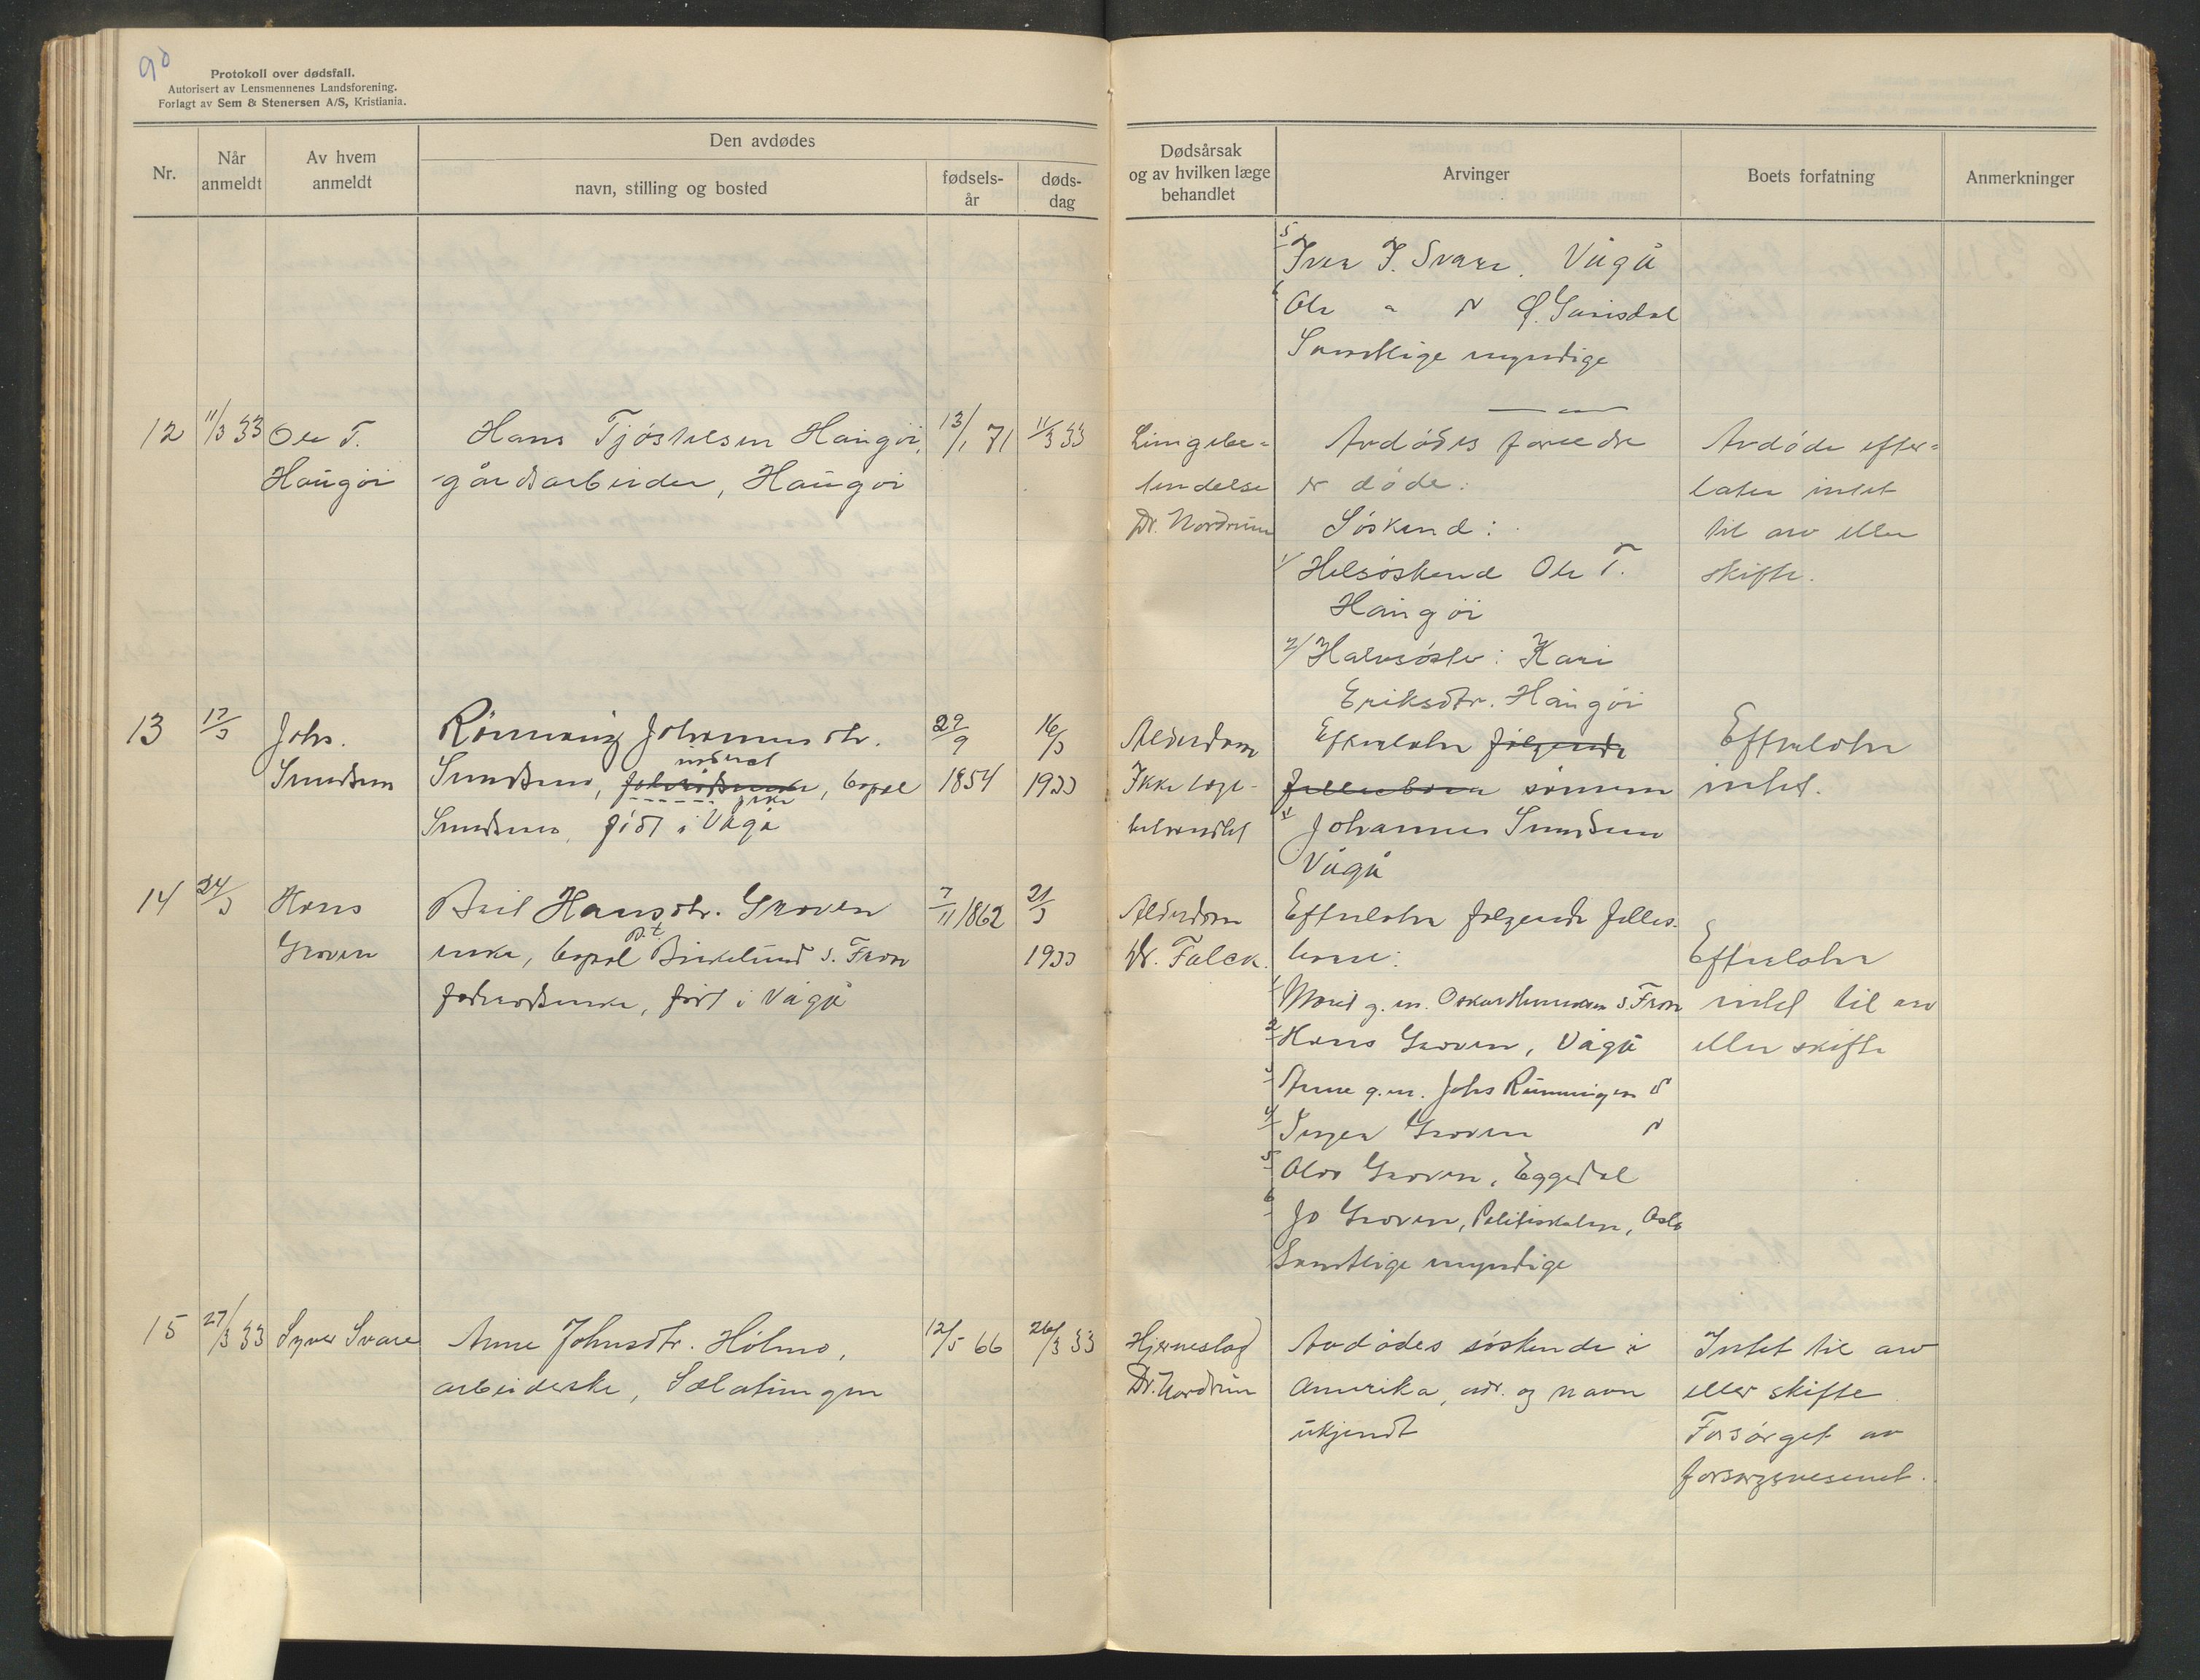 90
Protokoll over dødsfall.
Autorisert av Lensmennenes Landsforening.
Forlagt av Sem & Stenersen A/S, Kristiania.
Nr.
Når
anmeldt
Av hvem
anmeldt
Den avdødes
navn, stilling og bosted
fødsels-
år
døds-
dag
Dødsårsak
og av hvilken læge
behandlet
Arvinger
Boets forfatning
Anmerkninger
5 Iver J. Svare, Vågå
6 Ole " " Ø.
Samtlige myndige
12
11/3 33
Ole T.
Haugøi
Hans Tjøstelsen Haugøi,
gårdsarbeider, Haugøi
13/1 71
11/3 33
Lungebe-
tendelse
Dr. Nordrum
Avdødes foreldre
er døde.
Søskend:
1/ Helsøskend Ole T.
Haugøi
2/ Halvsøster: Kari
Eriksdtr. Haugøi
Avdøde efter-
later intet
til arv eller
skifte.
13
17/3
Johs.
Sundsem
Rønnaug Johannesdtr.
Sundsem, , bopæl
Sundsem, født i Vågå
29/9
1854
16/3
1933
Alderdom
Ikke læge-
behandlet
Efterlater følgende
fellesbarn sønnen
1 Johannes Sundsem
Vågå
Efterlater
intet.
14
24/3
Hans
Groven
Brit Hansdtr. Groven
enke, bopæl p.t. Birkelund S. Fron
, født i Vågå
7/11 1862
21/3
1933
Alderdom
Dr. Falck.
Efterlater følgende felles-
barn:
1 Marit g.m. Oskar S. Fron
2 Hans Groven, Vågå
3 Anne g.m. Johs Rummingen "
4 Inger Groven "
5 Olav Groven, Eggedal
6 Jo Groven, Politiskolen, Oslo
Samtlige myndige
Efterlater
intet til arv
eller skifte
15
27/3 33
Syver Svare
Anne Johnsdtr. Holmo,
arbeiderske, Sælatungen
12/5 66
26/3 33
Hjerneslag
Dr. Nordrum
Avdødes søskende i
Amerika, adr. og navn
ukjendt
Intet til arv
eller skifte
Forsørget av
forsorgsvesenet.